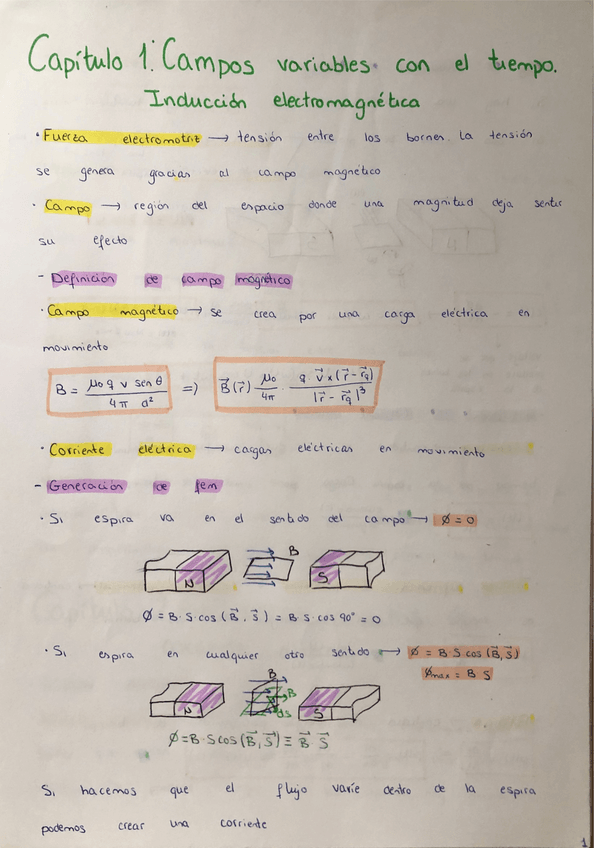 Capítulo 1: Campos variables con el tiempo.
Inducción electromagnética
· Fuerza electromotriz → tensión entre los bornes. La tensión
se genera gracias al campo magnético
· Campo → región del espacio donde una magnitud deja sentir
su efecto
- Definición de campo magnético
· Campo magnético → se crea por una carga eléctrica en
movimiento
B = μ₀ q v sen θ / 4π d² => B⃗(r⃗) μ₀/4π · q v⃗ × (r⃗ - r⃗q) / |r⃗ - r⃗q|³
· Corriente eléctrica → cargas eléctricas en movimiento
- Generación de fem
· Si espira va en el sentido del campo → Ø = 0
N B S
Ø = B · S · cos (B⃗, S⃗) = B · S · cos 90° = 0
· Si espira en cualquier otro sentido → Ø = B · S cos (B⃗, S⃗)
Ømax = B S
N B B dS S
Ø = B · S cos (B⃗, S⃗) ≡ B⃗ S⃗
Si hacemos que el flujo varíe dentro de la espira
podemos crear una corriente
1